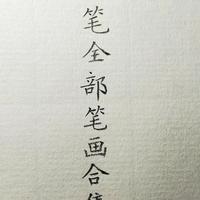 笔全部笔画合